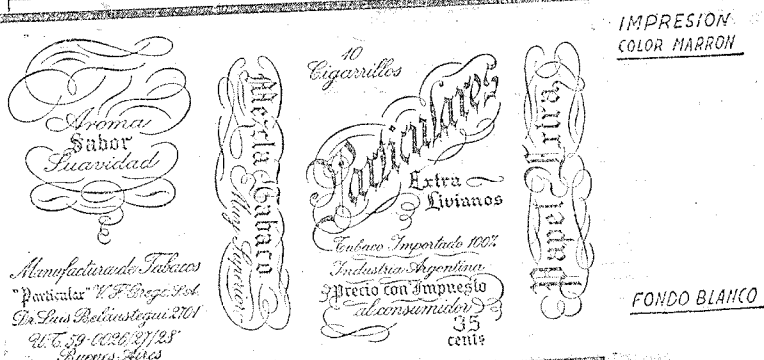 Aroma
Sabor
Suavidad
Manufactura de Tabacos
"Particular" V. F. Grego S.A.
Dr. Luis Beláustegui 2701
U.T. 59-0026/27/28
Buenos Aires
Mezcla Tabaco
Muy Superior
10
Cigarrillos
Particulares
Extra
Livianos
Tabaco Importado 100%
Industria Argentina
Precio con Impuesto
al consumidor
35
cents
Papel Extra
IMPRESION
COLOR MARRON
FONDO BLANCO